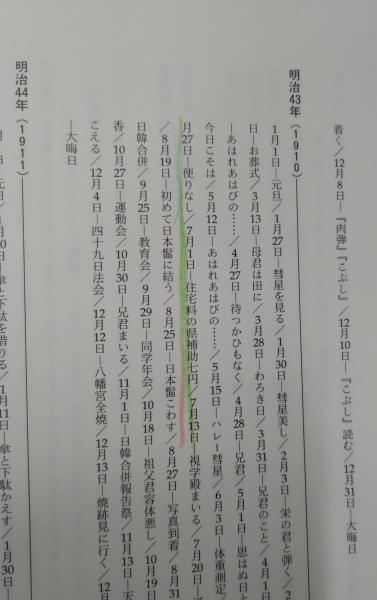 着く／12月8日―『肉弾』『こぶし』／12月10日―『こぶし』読む／12月31日―大晦日
明治43年（1910）
1月1日―元旦／1月27日―彗星を見る／1月30日―彗星美し／2月3日―栄の君と弾く／2
日―お葬式／3月13日―母君は田に／3月28日―わろき日／3月31日―兄君のこと／4月1
―あはれあはびの……／4月27日―待つかひもなく／4月28日―兄君／5月1日―思はぬ日と
今日こそは／5月12日―あはれあはびの……／5月15日―ハレー彗星／6月3日―体重測定／
月27日―便りなし／7月1日―住宅料の県補助七円／7月13日―視学殿まいる／7月20日―
／8月19日―初めて日本髷に結う／8月25日―日本髷こわす／8月27日―写真到着／8月31
日韓合併／9月25日―教育会／9月29日―同学年会／10月18日―祖父君容体悪し／10月19
香／10月27日―運動会／10月30日―兄君まいる／11月1日―日韓合併報告祭／11月13日―天
こえる／12月4日―四十九日法会／12月12日―八幡宮全焼／12月13日―焼跡見に行く／12
―大晦日
明治44年（1911）
日―傘と下駄を借りる／1月11日―傘と下駄かえす／1月30日―